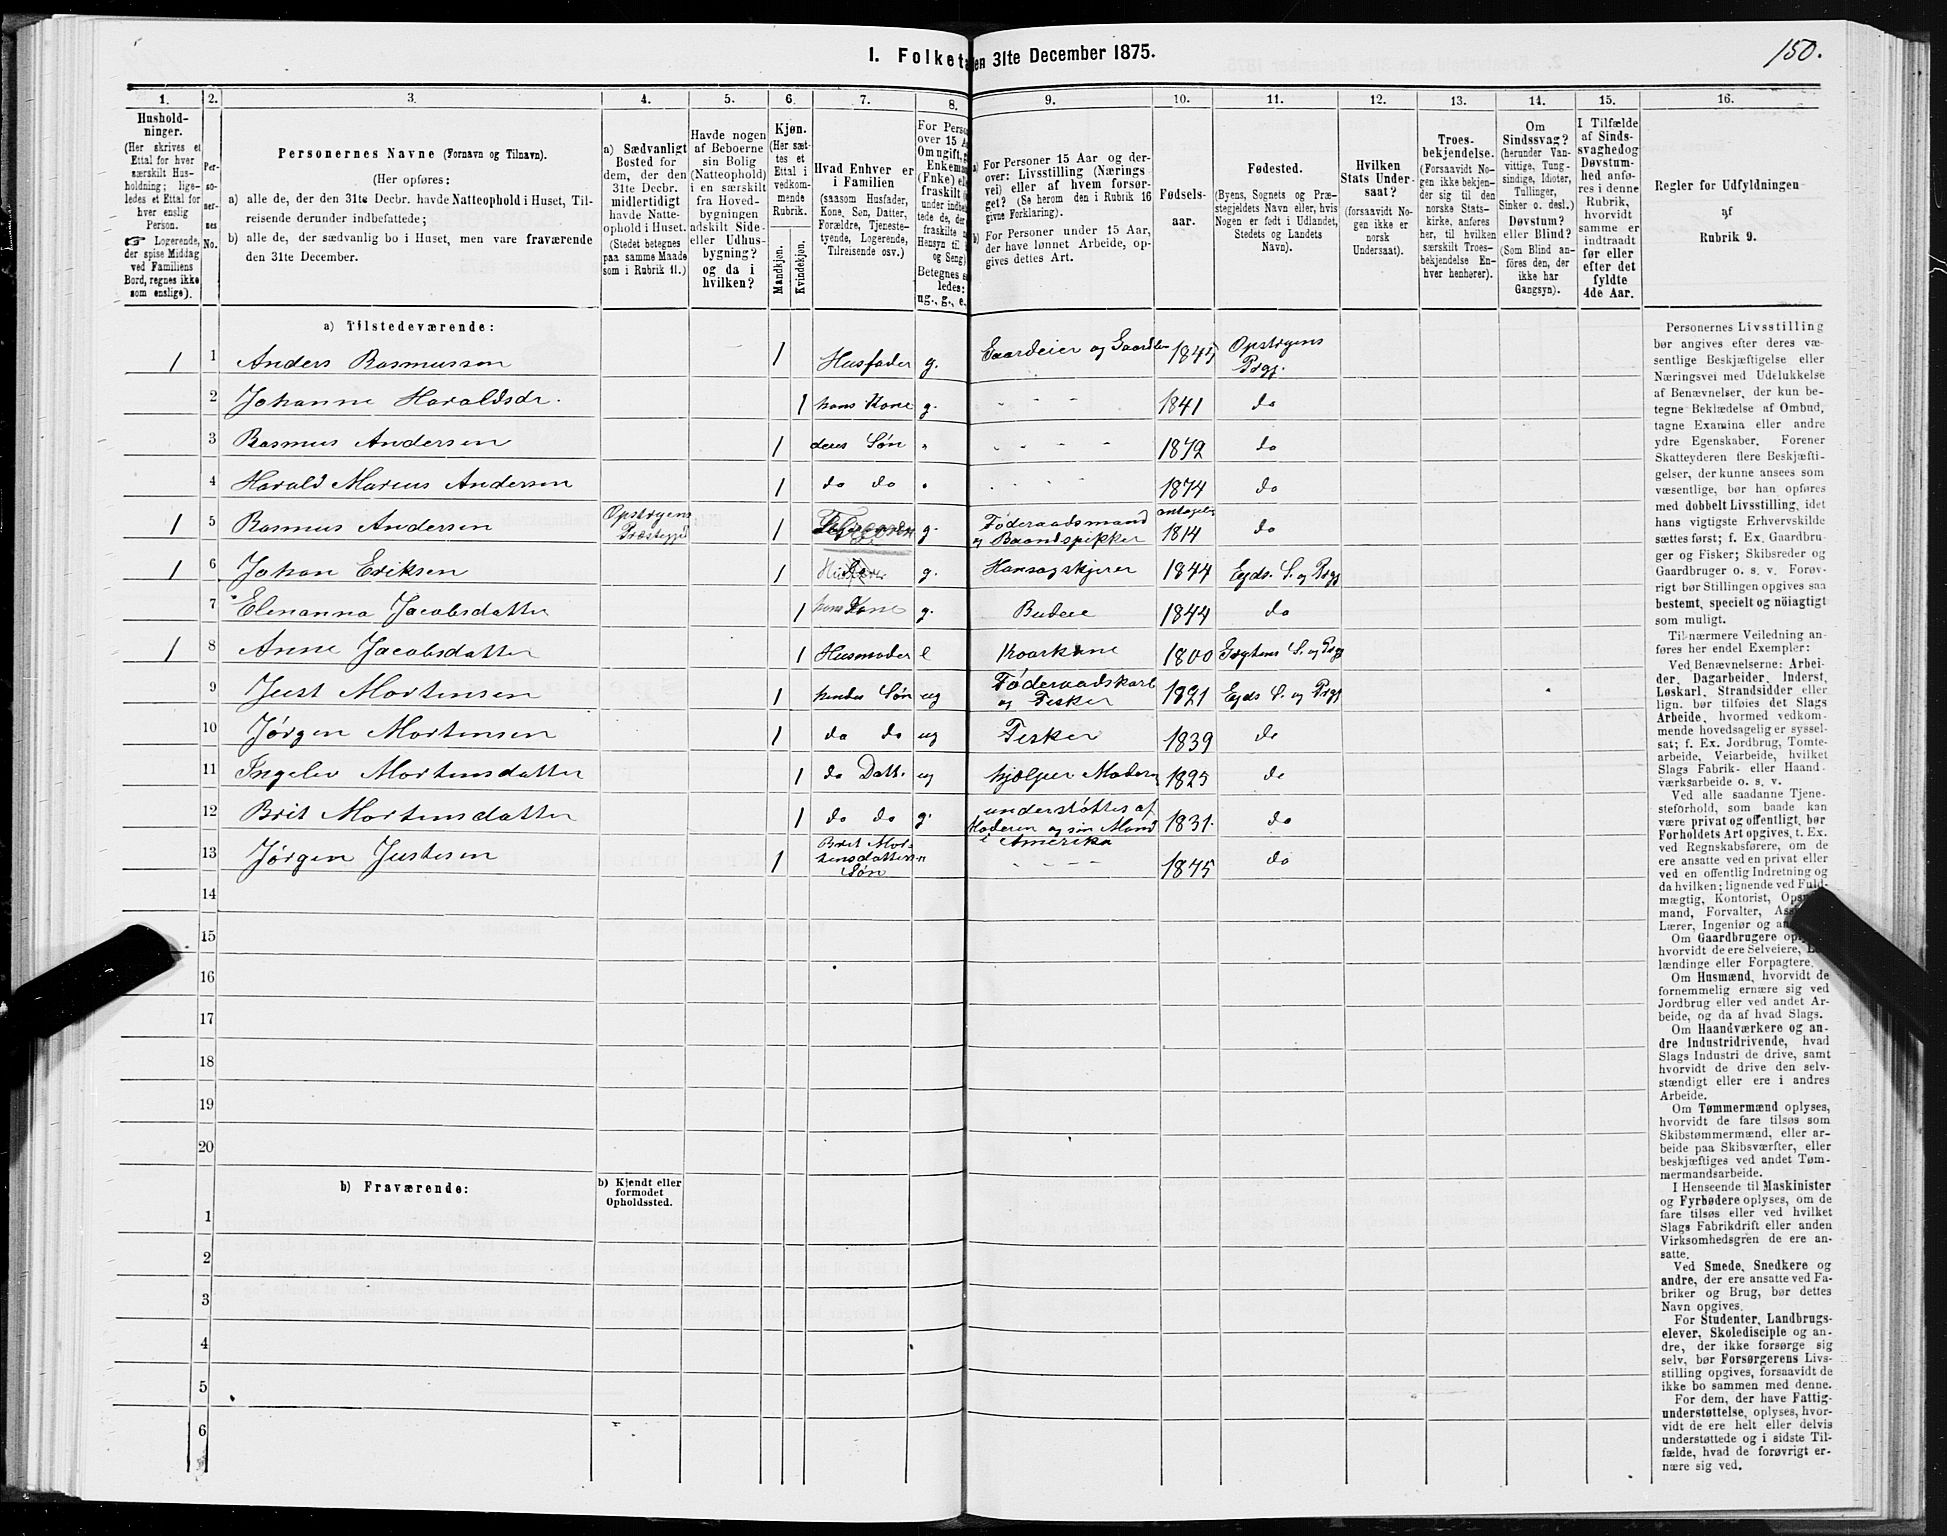 I. Folketa en 31te December 1875.
150.
1. 2. 3. 4. 5. 6. 7. 8. 9. 10. 11. 12. 13. 14. 15. 16.
Hushold-
ninger.
(Her skrives et
Ettal for hver
særskilt Hus-
holdning; lige-
ledes et Ettal for
hver enslig
Person.
☞ Logerende,
der spise Middag
ved Familiens
Bord, regnes ikke
som enslige).
Per-
so-
ner-
nes
No.
Personernes Navne (Fornavn og Tilnavn).
(Her opføres:
a) alle de, der den 31te Decbr. havde Natteophold i Huset, Til-
reisende derunder indbefattede;
b) alle de, der sædvanlig bo i Huset, men vare fraværende
den 31te December.
a) Sædvanligt
Bosted for
dem, der den
31te Decbr.
midlertidigt
havde Natte-
ophold i Huset.
(Stedet betegnes
paa samme Maade
som i Rubrik 11.)
Havde nogen
af Beboerne
sin Bolig
(Natteophold)
i en særskilt
fra Hoved-
bygningen
adskilt Side-
eller Udhus-
bygning?
og da i
hvilken?
Kjøn.
(Her sæt-
tes et
Ettal i
vedkom-
mende
Rubrik.
Mandkjøn.
Kvindekjøn.
Hvad Enhver er
i Familien
(saasom Husfader,
Kone, Søn, Datter,
Forældre, Tjeneste-
tyende, Logerende,
Tilreisende osv.)
For Perso
over 15 A
Om ugift, g
Enkeman
(Enke) ell
fraskilt
under indbe
tede de, de
fraskilte
Hensyn til
og Seng)
Betegnes s
ledes:
ug., g., e.
a) For Personer 15 Aar og der-
over: Livsstilling (Nærings
vei) eller af hvem forsør-
get? (Se herom den i Rubrik 16
givne Forklaring).
b) For Personer under 15 Aar,
der have lønnet Arbeide, op-
gives dettes Art.
Fødsels-
aar.
Fødested.
(Byens, Sognets og Præ-
stegjeldets Navn eller, hvis
Nogen er født i Udlandet,
Stedets og Landets
Navn).
Hvilken
Stats Under-
saat?
(forsaavidt No-
gen ikke er
norsk
Undersaat).
Troes-
bekjendelse.
(Forsaavidt No-
gen ikke bekjen-
der sig til den
norske Stats-
kirke, anføres
her, til hvilken
særskilt Troes-
bekjendelse En-
hver henhører).
Om
Sindssvag?
(herunder Van-
vittige, Tung-
sindige, Idioter,
Tullinger,
Sinker o. desl.)
Døvstum?
eller Blind?
(Som Blind an-
føres den, der
ikke har
Gangsyn).
I Tilfælde
af Sinds-
svaghedog
Døvstum-
hed anfø-
res i denne
Rubrik,
hvorvidt
samme er
indtraadt
før eller
efter det
fyldte
4de Aar.
Regler for Udfyldningen
af
Rubrik 9.
a) Tilstedeværende:
1 1 Anders Rasmussen 1 Husfader g. Gaardeier og 1845 Opstryens Prgj.
2 Johanne Haraldsdr. 1 hans Kone g. " " " 1841 do
3 Rasmus Andersen 1 deres Søn " " " " 1872 do
4 Harald Marius Andersen 1 do do " " " " 1874 do
1 5 Rasmus Andersen Opstryens Præstegjd 1 g. Føderaadsmand og Baandspikker antagelig 1814 do
1 6 Johan Eriksen 1 g. Handsagskjerer 1844 Ejds. S. og Prgj
7 Elenanna Jacobsdatter 1 hans Kone g. Budeie 1844 do
1 8 Anne Jacobsdatter 1 Husmoder e Kaarkone 1800 S. og Prgj
9 Just Mortensen 1 hendes Søn ug Føderaadskarl og Fisker 1821 Ejds S. og Prgj
10 Jørgen Mortensen 1 do do ug Fisker 1839 do
11 Ingelev Mortensdatter 1 do Datt. ug hjælper Moderen 1825 do
12 Brit Mortensdatter 1 do do g. understøttes af Moderen og sin Mand i Amerika 1831. do
13 Jørgen Justesen 1 Brit Mor-tensdatters Søn " " " " 1875 do
14
15
16
17
18
19
20
b) Fraværende:
b) Kjendt eller
formodet
Opholdssted.
1
2
3
4
5
6
Personernes Livsstilling
bør angives efter deres væ-
sentlige Beskjæftigelse eller
Næringsvei med Udelukkelse
af Benævnelser, der kun be-
tegne Beklædelse af Ombud,
tagne Examina eller andre
ydre Egenskaber. Forener
Skatteyderen flere Beskjæfti-
gelser, der kunne ansees som
væsentlige, bør han opføres
med dobbelt Livsstilling, idet
hans vigtigste Erhvervskilde
sættes først; f. Ex. Gaardbru-
ger og Fisker; Skibsreder og
Gaardbruger o. s. v. Forøv-
rigt bør Stillingen opgives saa
bestemt, specielt og nöiagtigt
som muligt.
Til nærmere Veiledning an-
føres her endel Exempler:
Ved Benævnelserne: Arbei-
der, Dagarbeider, Inderst,
Løskarl, Strandsidder eller
lign. bør tilføies det Slags
Arbeide, hvormed vedkom-
mende hovedsagelig er syssel-
sat; f. Ex. Jordbrug, Tomte-
arbeide, Veiarbeide, hvilket
Slags Fabrik- eller Haand-
værksarbeide o. s. v.
Ved alle saadanne Tjene-
steforhold, som baade kan
være privat og offentligt, bør
Forholdets Art opgives, t. Ex.
ved Regnskabsførere, om de
ere ansatte ved en privat eller
ved en offentlig Indretning og
da hvilken; lignende ved Fuld-
mægtig, Kontorist, Opsyns-
mand, Forvalter, Ass
Lærer, Ingeniør og an
Om Gaardbrugere oply
hvorvidt de ere Selveiere, Le
lændinge eller Forpagtere.
Om Husmænd, hvorvidt de
fornemmelig ernære sig ved
Jordbrug eller ved andet Ar-
beide, og da af hvad Slags.
Om Haandværkere og an-
dre Industridrivende, hvad
Slags Industri de drive, samt
hvorvidt de drive den selv-
stændigt eller ere i andres
Arbeide.
Om Tømmermænd oplyses,
hvorvidt de fare tilsøs som
Skibstømmermænd, eller ar-
beide paa Skibsværfter, eller
beskjæftiges ved andet Tøm-
mermandsarbeide.
I Henseende til Maskinister
og Fyrbødere oplyses, om de
fare tilsøs eller ved hvilket
Slags Fabrikdrift eller anden
Virksomhedsgren de ere an-
satte.
Ved Smede, Snedkere og
andre, der ere ansatte ved Fa-
briker og Brug, bør dettes
Navn opgives.
For Studenter, Landbrugs-
elever, Skoledisciple og an-
dre, der ikke forsørge sig
selv, bør Forsørgerens Livs-
stilling opgives, forsaavidt de
ikke bo sammen med denne.
For dem, der have Fattig-
understøttelse, oplyses, hvor-
vidt de ere helt eller delvis
understøttede og i sidste Til-
fælde, hvad de forøvrigt er-
nære sig ved.